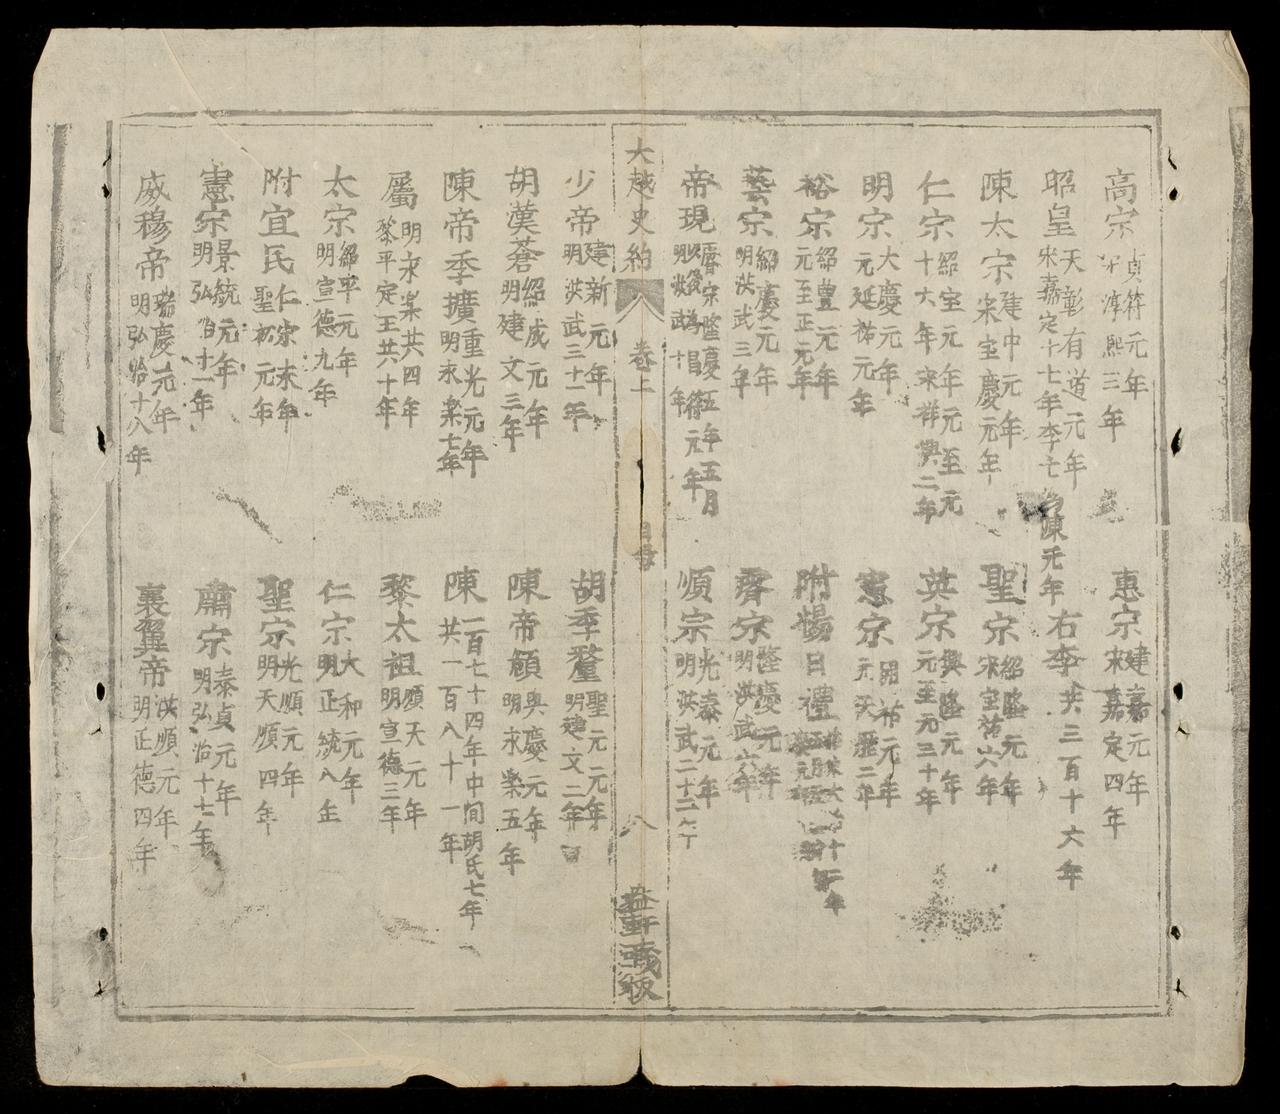 高宗 貞符元年 宋淳熙三年
惠宗 建嘉元年 宋嘉定四年
昭皇 天彰有道元年 宋嘉定十七年李亡為陳元年
右李 共三百十六年
陳太宗 建中元年 宋宝慶元年
聖宗 紹隆元年 宋宝祐六年
仁宗 紹宝元年元至元十六年宋祥興二年
英宗 興隆元年 元至元三十年
明宗 大慶元年 元延祐元年
憲宗 開祐元年 元天歷二年
裕宗 紹豊元年 元至正元年
附楊日禮
藝宗 紹慶元年 明洪武三年
睿宗 隆慶元年 明洪武六年
帝現 睿宗隆慶五年五月以後為昌符元年 明洪武十年
順宗 光泰元年 明洪武二十二年
大越史約 卷上 目録 八 益軒藏板
少帝 建新元年 明洪武三十一年
胡季犛 聖元元年 明建文二年
胡漢蒼 紹成元年 明建文三年
陳帝頠 興慶元年 明永楽五年
陳帝季擴 重光元年 明永楽七年
陳 一百七十四年中间胡氏七年共一百八十一年
屬 明永楽共四年 黎平定王共六十年
黎太祖 順天元年 明宣德三年
太宗 紹平元年 明宣德九年
仁宗 大和元年 明正統八年
附宜民 仁宗末年 聖宗元年
聖宗 光順元年 明天順四年
憲宗 景統元年 明弘治十一年
肅宗 泰貞元年 明弘治十七年
威穆帝 瑞慶元年 明弘治十八年
襄翼帝 洪順元年 明正德四年